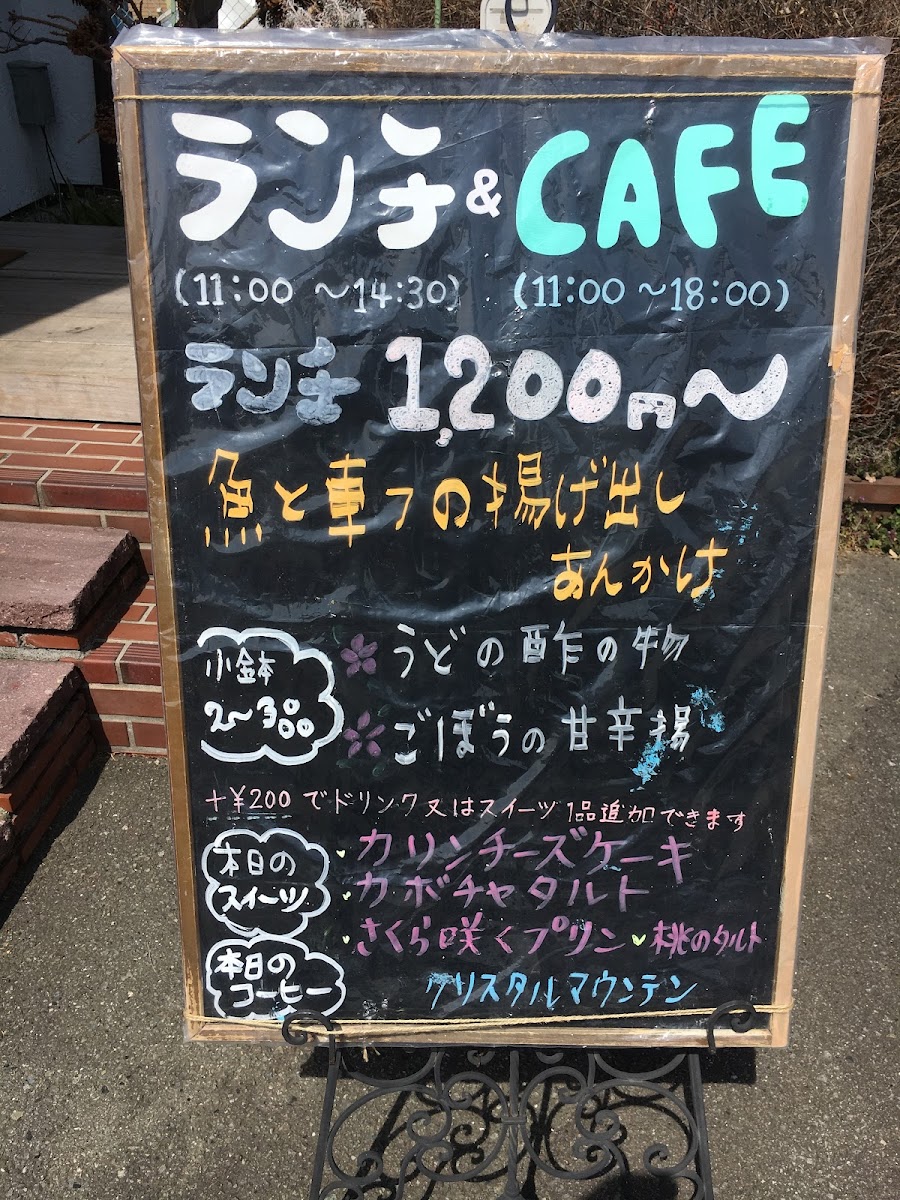 ランチ&CAFE
(11:00 〜14:30) (11:00 〜18:00)
ランチ 1,200円〜
魚と車フの揚げ出し
あんかけ
小鉢
2〜300
うどの酢の物
ごぼうの甘辛揚
+¥200 でドリンク又はスイーツ 1品追加できます
本日の
スイーツ
カリンチーズケーキ
カボチャタルト
さくら咲くプリン 桃のタルト
本日の
コーヒー
クリスタルマウンテン